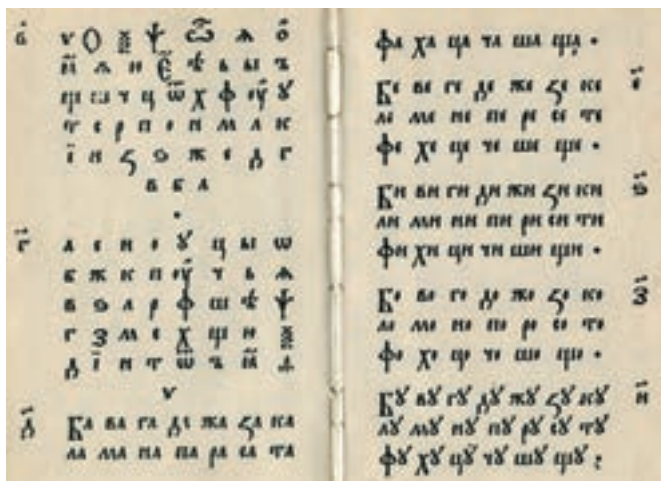 в҃ ѵ О ѯ ѱ ѽ ѧ о
ꙗ ѫ ю Ѥ ѣ ь ы ъ
щ ш ч ц ѿ х ф ѹ ꙋ
т с р п о н м л к
ї и ѕ з ж е д г
в б а
г҃ а е и о ꙋ ц ы ѡ
б ж к п ѹ ч ь ѧ
в ѕ л р ф ш ѣ ѱ
г з м с х щ ю ѯ
д ї н т ѿ ъ ꙗ ѳ
ѵ
д҃ Ба ва га да жа ѕа ка
ла ма на па ра са та
фа ха ца ча ша ща .
Бе ве ге де же ѕе ке є҃
ле ме не пе ре се те
фе хе це че ше ще .
Би ви ги ди жи ѕи ки ѕ҃
ли ми ни пи ри си ти
фи хи ци чи ши щи .
Бо во го до жо ѕо ко з҃
ло мо но по ро со то
фо хо цо чо шо що .
Бꙋ вꙋ гꙋ дꙋ жꙋ ѕꙋ кꙋ и҃
лꙋ мꙋ нꙋ пꙋ рꙋ сꙋ тꙋ
фꙋ хꙋ цꙋ чꙋ шꙋ щꙋ :